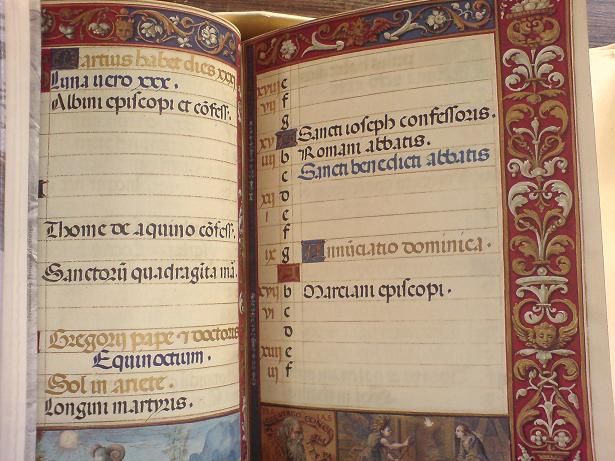 Martius habet dies xxxi
Luna uero xxx.
Albini episcopi et cõfess.
Thome de aquino cõfess.
Sanctorũ quadragĩta mã.
Gregorij pape ⁊ doctoris
Equinoctium.
Sol in ariete.
Longini martyris.
xviii e
vii f
g
xv A Sancti ioseph confessoris.
iiii b Romani abbatis.
c Sancti benedicti abbatis
xii D
i e
f
ix g Annũciatio dominica.
A
xvii b Marciani episcopi.
vi c
D
xiiii e
iii f
VIRGO CONC